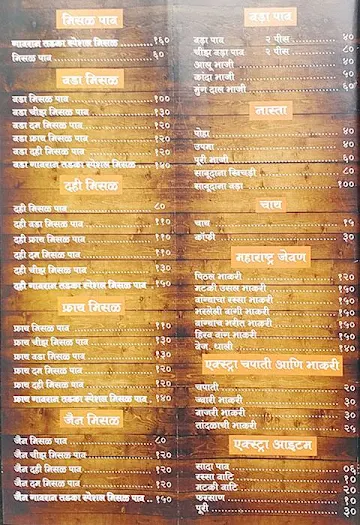 मिसळ पाव
गावरान तडका स्पेशल मिसळ ......१६०
मिसळ पाव ......६०
वडा मिसळ
वडा मिसळ पाव ......१००
वडा चीझ मिसळ पाव ......१३०
वडा दम मिसळ पाव ......१२०
वडा फ्राय मिसळ पाव ......१२०
वडा दही मिसळ पाव ......१२०
वडा गावरान तडका स्पेशल मिसळ ......१४०
दही मिसळ
दही मिसळ पाव ......८०
दही वडा मिसळ पाव ......११०
दही फ्राय मिसळ पाव ......११०
दही दम मिसळ पाव ......११०
दही चीझ मिसळ पाव ......१३०
दही गावरान तडका स्पेशल मिसळ पाव ......१५०
फ्राय मिसळ
फ्राय मिसळ पाव ......११०
फ्राय चीझ मिसळ पाव ......१३०
फ्राय वडा मिसळ पाव ......१३०
फ्राय दम मिसळ पाव ......१२०
फ्राय दही मिसळ पाव ......१२०
फ्राय गावरान तडका स्पेशल मिसळ पाव ..१४०
जैन मिसळ
जैन मिसळ पाव ......८०
जैन चीझ मिसळ पाव ......१२०
जैन दही मिसळ पाव ......१२०
जैन दम मिसळ पाव ......१२०
जैन गावरान तडका स्पेशल मिसळ पाव ..१५०
वडा पाव
वडा पाव २ पीस ......४०
चीझ वडा पाव २ पीस ......८०
आलू भाजी ......४०
कांदा भाजी ......५०
मुंग दाल भाजी ......६०
नास्ता
पोहा ......४०
उपमा ......४०
पूरी भाजी ......६०
साबूदाना खिचडी ......८०
साबूदाना वडा ......१००
चाय
चाय ......१५
कॉफी ......३०
महाराष्ट्र जेवण
पिठल भाकरी ......१२०
मटकी उसल भाकरी ......१५०
वांग्याचा रस्सा भाकरी ......१५०
भरलेली वांगी भाकरी ......१५०
वांग्याच भरीत भाकरी ......१५०
हिरव वांग भाकरी ......१५०
वेज. थाळी ......१४०
एक्स्ट्रा चपाती आणि भाकरी
चपाती ......२०
ज्वारी भाकरी ......३०
बाजरी भाकरी ......३०
तांदळाची भाकरी ......२५
एक्स्ट्रा आइटम
सादा पाव ......०६
रस्सा वाटि ......१०
मटकी वाटि ......२०
फरसाण ......१०
पूरी ......३०